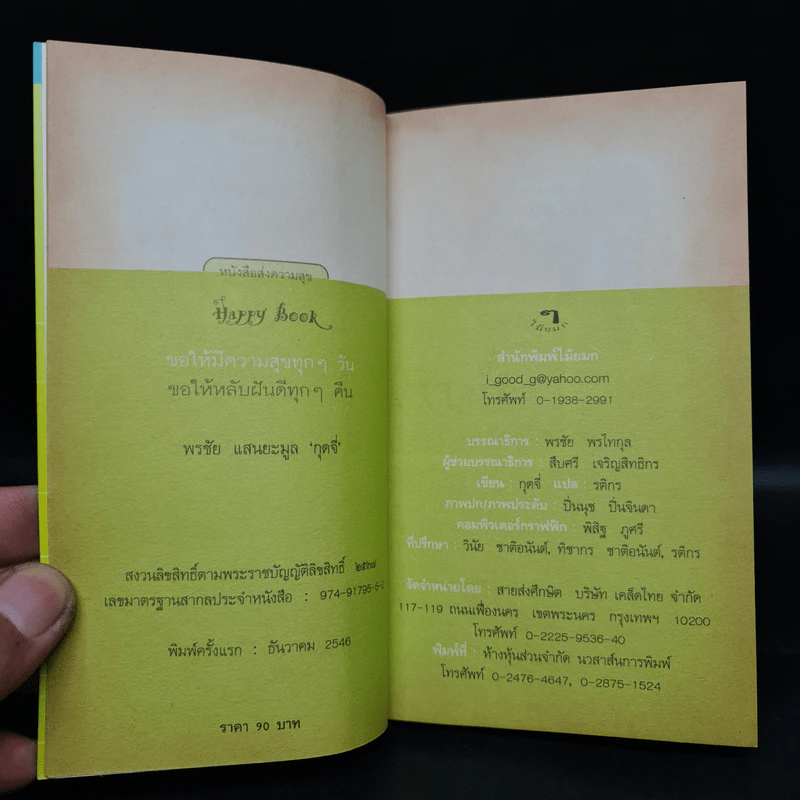 หนังสือส่งความสุข
Happy Book
ขอให้มีความสุขทุกๆ วัน
ขอให้หลับฝันดีทุกๆ คืน
พรชัย แสนยะมูล 'กุดจี่'
สงวนลิขสิทธิ์ตามพระราชบัญญัติลิขสิทธิ์ ๒๕๓๗
เลขมาตรฐานสากลประจำหนังสือ : 974-91795-5-2
พิมพ์ครั้งแรก : ธันวาคม 2546
ราคา 90 บาท
ๆ
ไม้ยมก
สำนักพิมพ์ไม้ยมก
i_good_g@yahoo.com
โทรศัพท์ 0-1938-2991
บรรณาธิการ : พรชัย พรไทกุล
ผู้ช่วยบรรณาธิการ : สืบศรี เจริญสิทธิกร
เขียน : กุดจี่ แปล : รติกร
ภาพปก/ภาพประดับ : ปิ่นนุช ปิ่นจินดา
คอมพิวเตอร์กราฟฟิก : พิสิฐ ภูศรี
ที่ปรึกษา : วินัย ชาติอนันต์, ทิชากร ชาติอนันต์, รติกร
จัดจำหน่ายโดย : สายส่งศึกษิต บริษัท เคล็ดไทย จำกัด
117-119 ถนนเฟื่องนคร เขตพระนคร กรุงเทพฯ 10200
โทรศัพท์ 0-2225-9536-40
พิมพ์ที่ : ห้างหุ้นส่วนจำกัด นวสาส์นการพิมพ์
โทรศัพท์ 0-2476-4647, 0-2875-1524